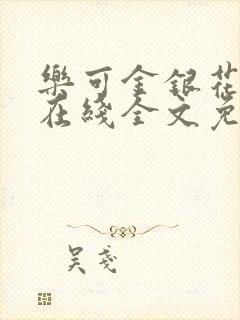 樂可金銀花
在綫全文免
吴戔